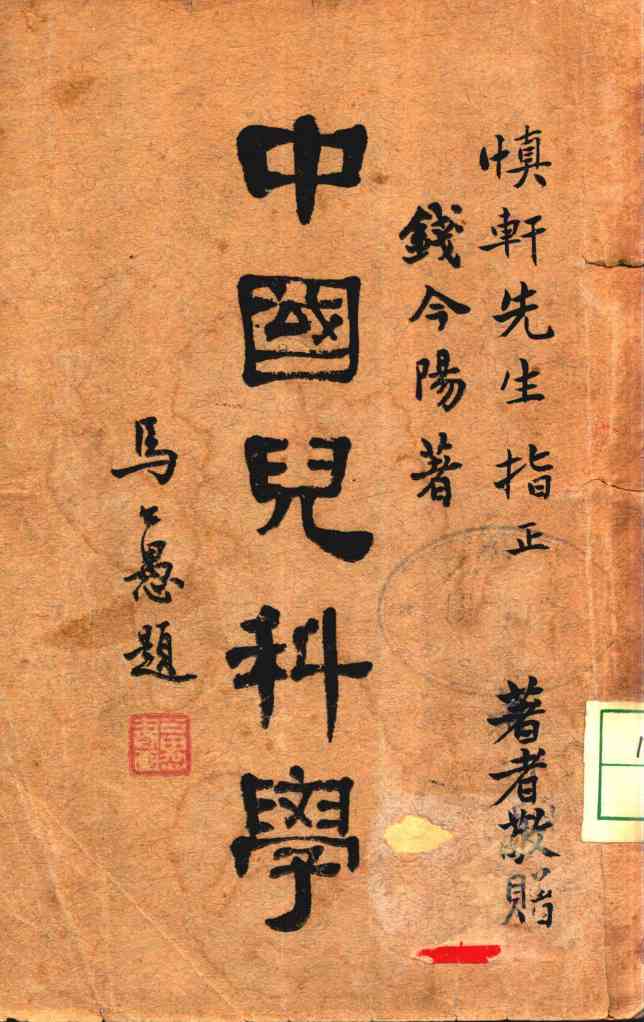 慎軒先生指正
著者敬贈
錢今陽著
中國兒科學
馬公愚題
1